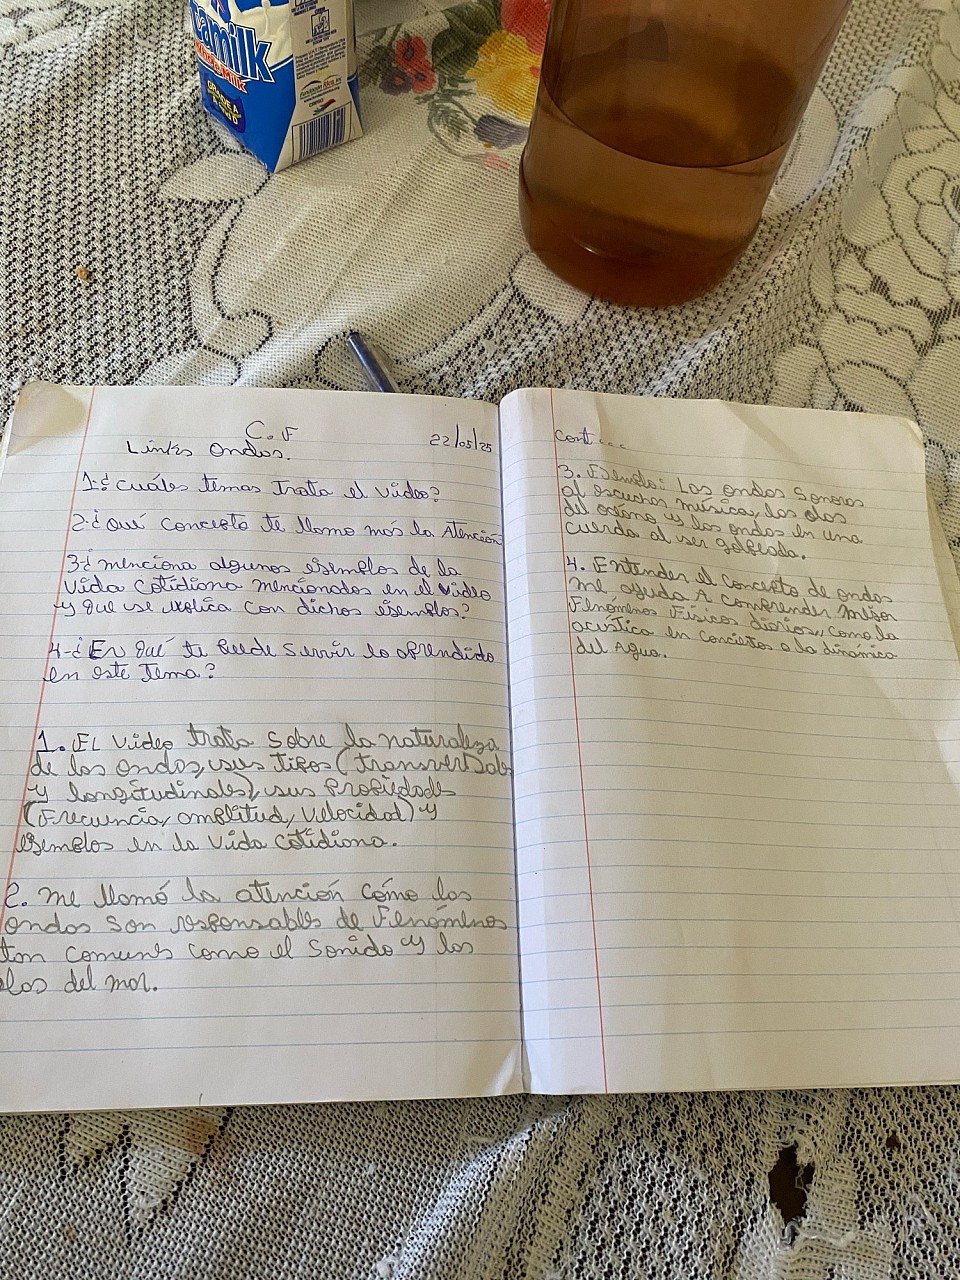 amilk
Whole Milk
GRADE A
C.F
22/05/25
Links ondas.
1-¿ cuáles temas Trata el video?
2-¿Qué concepto te llamo más la Atención
3-¿ menciona algunos ejemplos de la
vida cotidiana mencionados en el video
y que se explica con dichos ejemplos?
4-¿En qué te puede servir lo aprendido
en este tema?
1. EL video trata sobre la naturaleza
de las ondas, sus tipos (transversales
y longitudinales), sus propiedades
(Frecuencia, amplitud, velocidad) y
ejemplos en la vida cotidiana.
2. me llamó la atención cómo las
ondas son responsables de Fenómenos
tan comunes como el sonido y las
olas del mar.
Cont...
3. Ejemplo: Las ondas sonoras
al escuchar música, las olas
del océano y las ondas en una
cuerda al ser golpeada.
4. Entender el concepto de ondas
me ayuda A comprender mejor
Fenómenos Físicos diarios, como la
acústica en conciertos o la dinámica
del Agua.